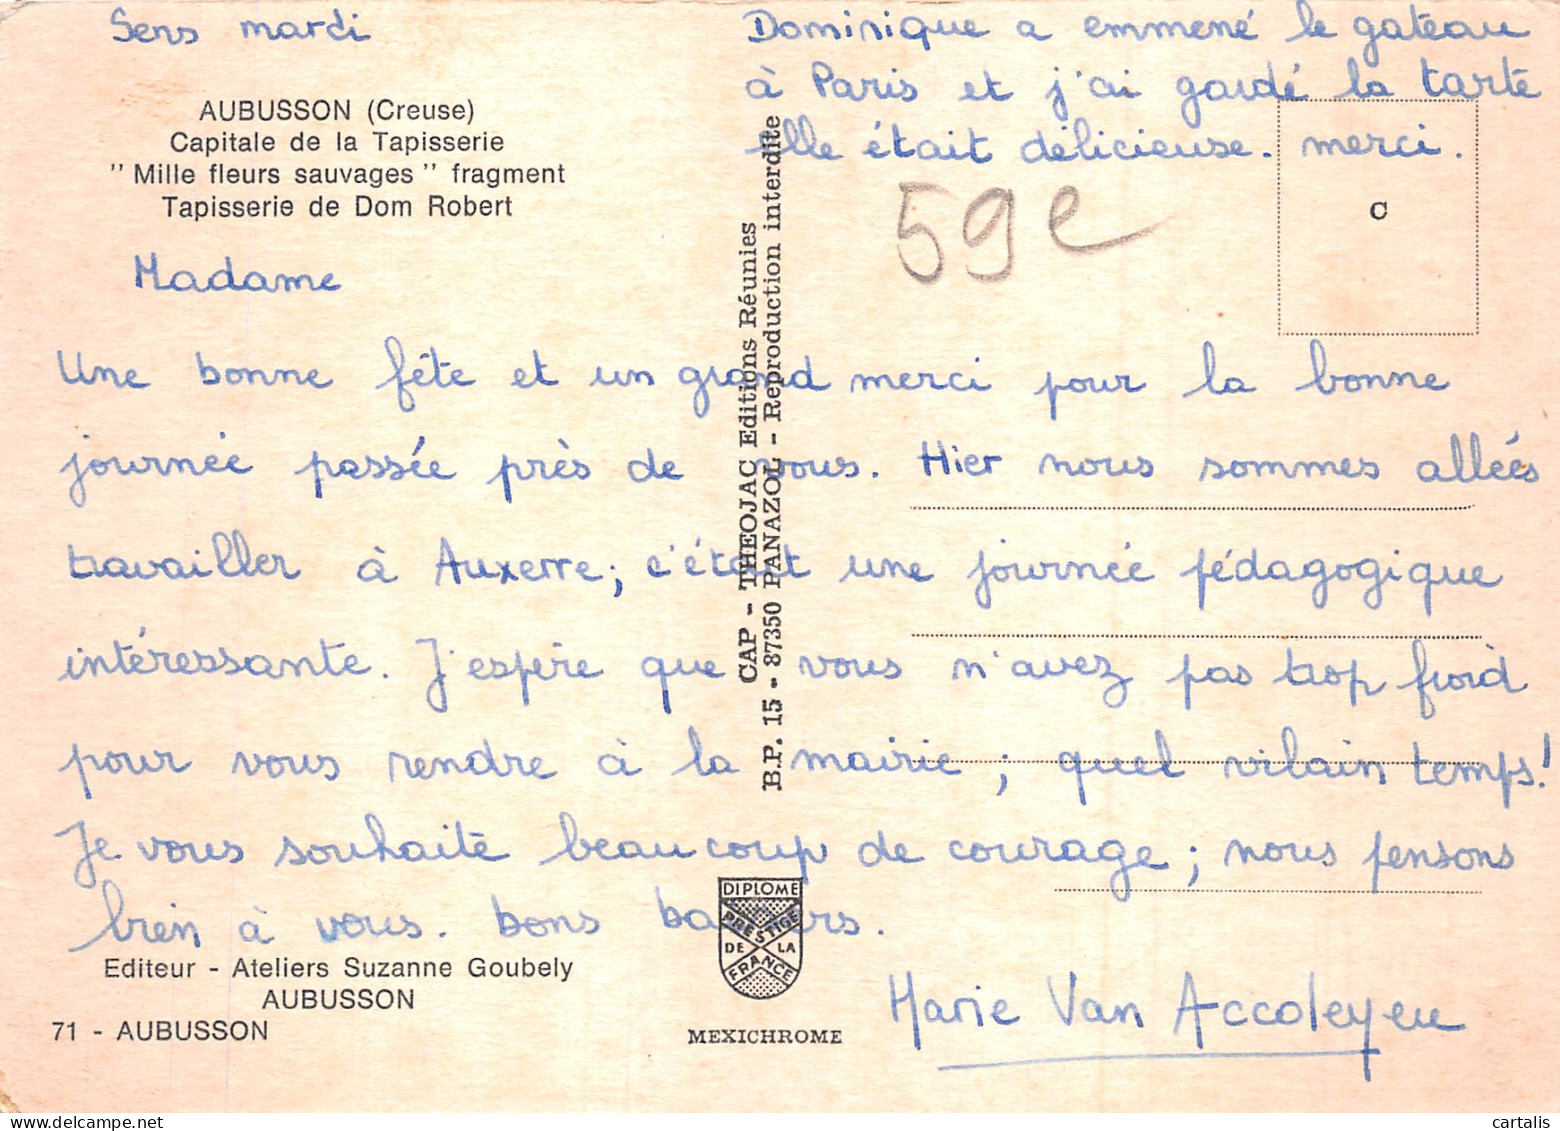 Sens mardi
AUBUSSON (Creuse)
Capitale de la Tapisserie
" Mille fleurs sauvages " fragment
Tapisserie de Dom Robert
Madame
Une bonne fête et un grand merci pour la bonne
journée passée près de vous. Hier nous sommes allées
travailler à Auxerre; c'était une journée pédagogique
intéressante. J'espère que vous n'avez pas trop froid
pour vous rendre à la mairie; quel vilain temps!
Je vous souhaite beaucoup de courage; nous pensons
bien à vous. bons baisers.
Marie Van Accoleyen
Dominique a emmené le gateau
à Paris et j'ai gardé la tarte
elle était délicieuse. merci.
59e
C
CAP - THEOJAC Editions Réunies
B.P. 15 - 87350 PANAZOL - Reproduction interdite
DIPLOME
PRESTIGE
DE LA
FRANCE
MEXICHROME
Editeur - Ateliers Suzanne Goubely
AUBUSSON
71 - AUBUSSON
cartalis